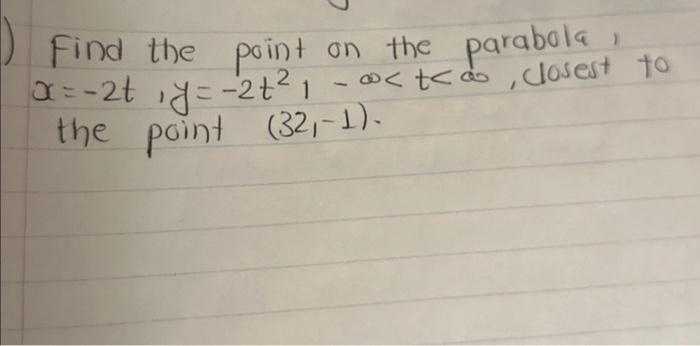 ) Find the point on the parabola,
x=-2t, y=-2t², -∞<t<∞, closest to
the point (32,-1).